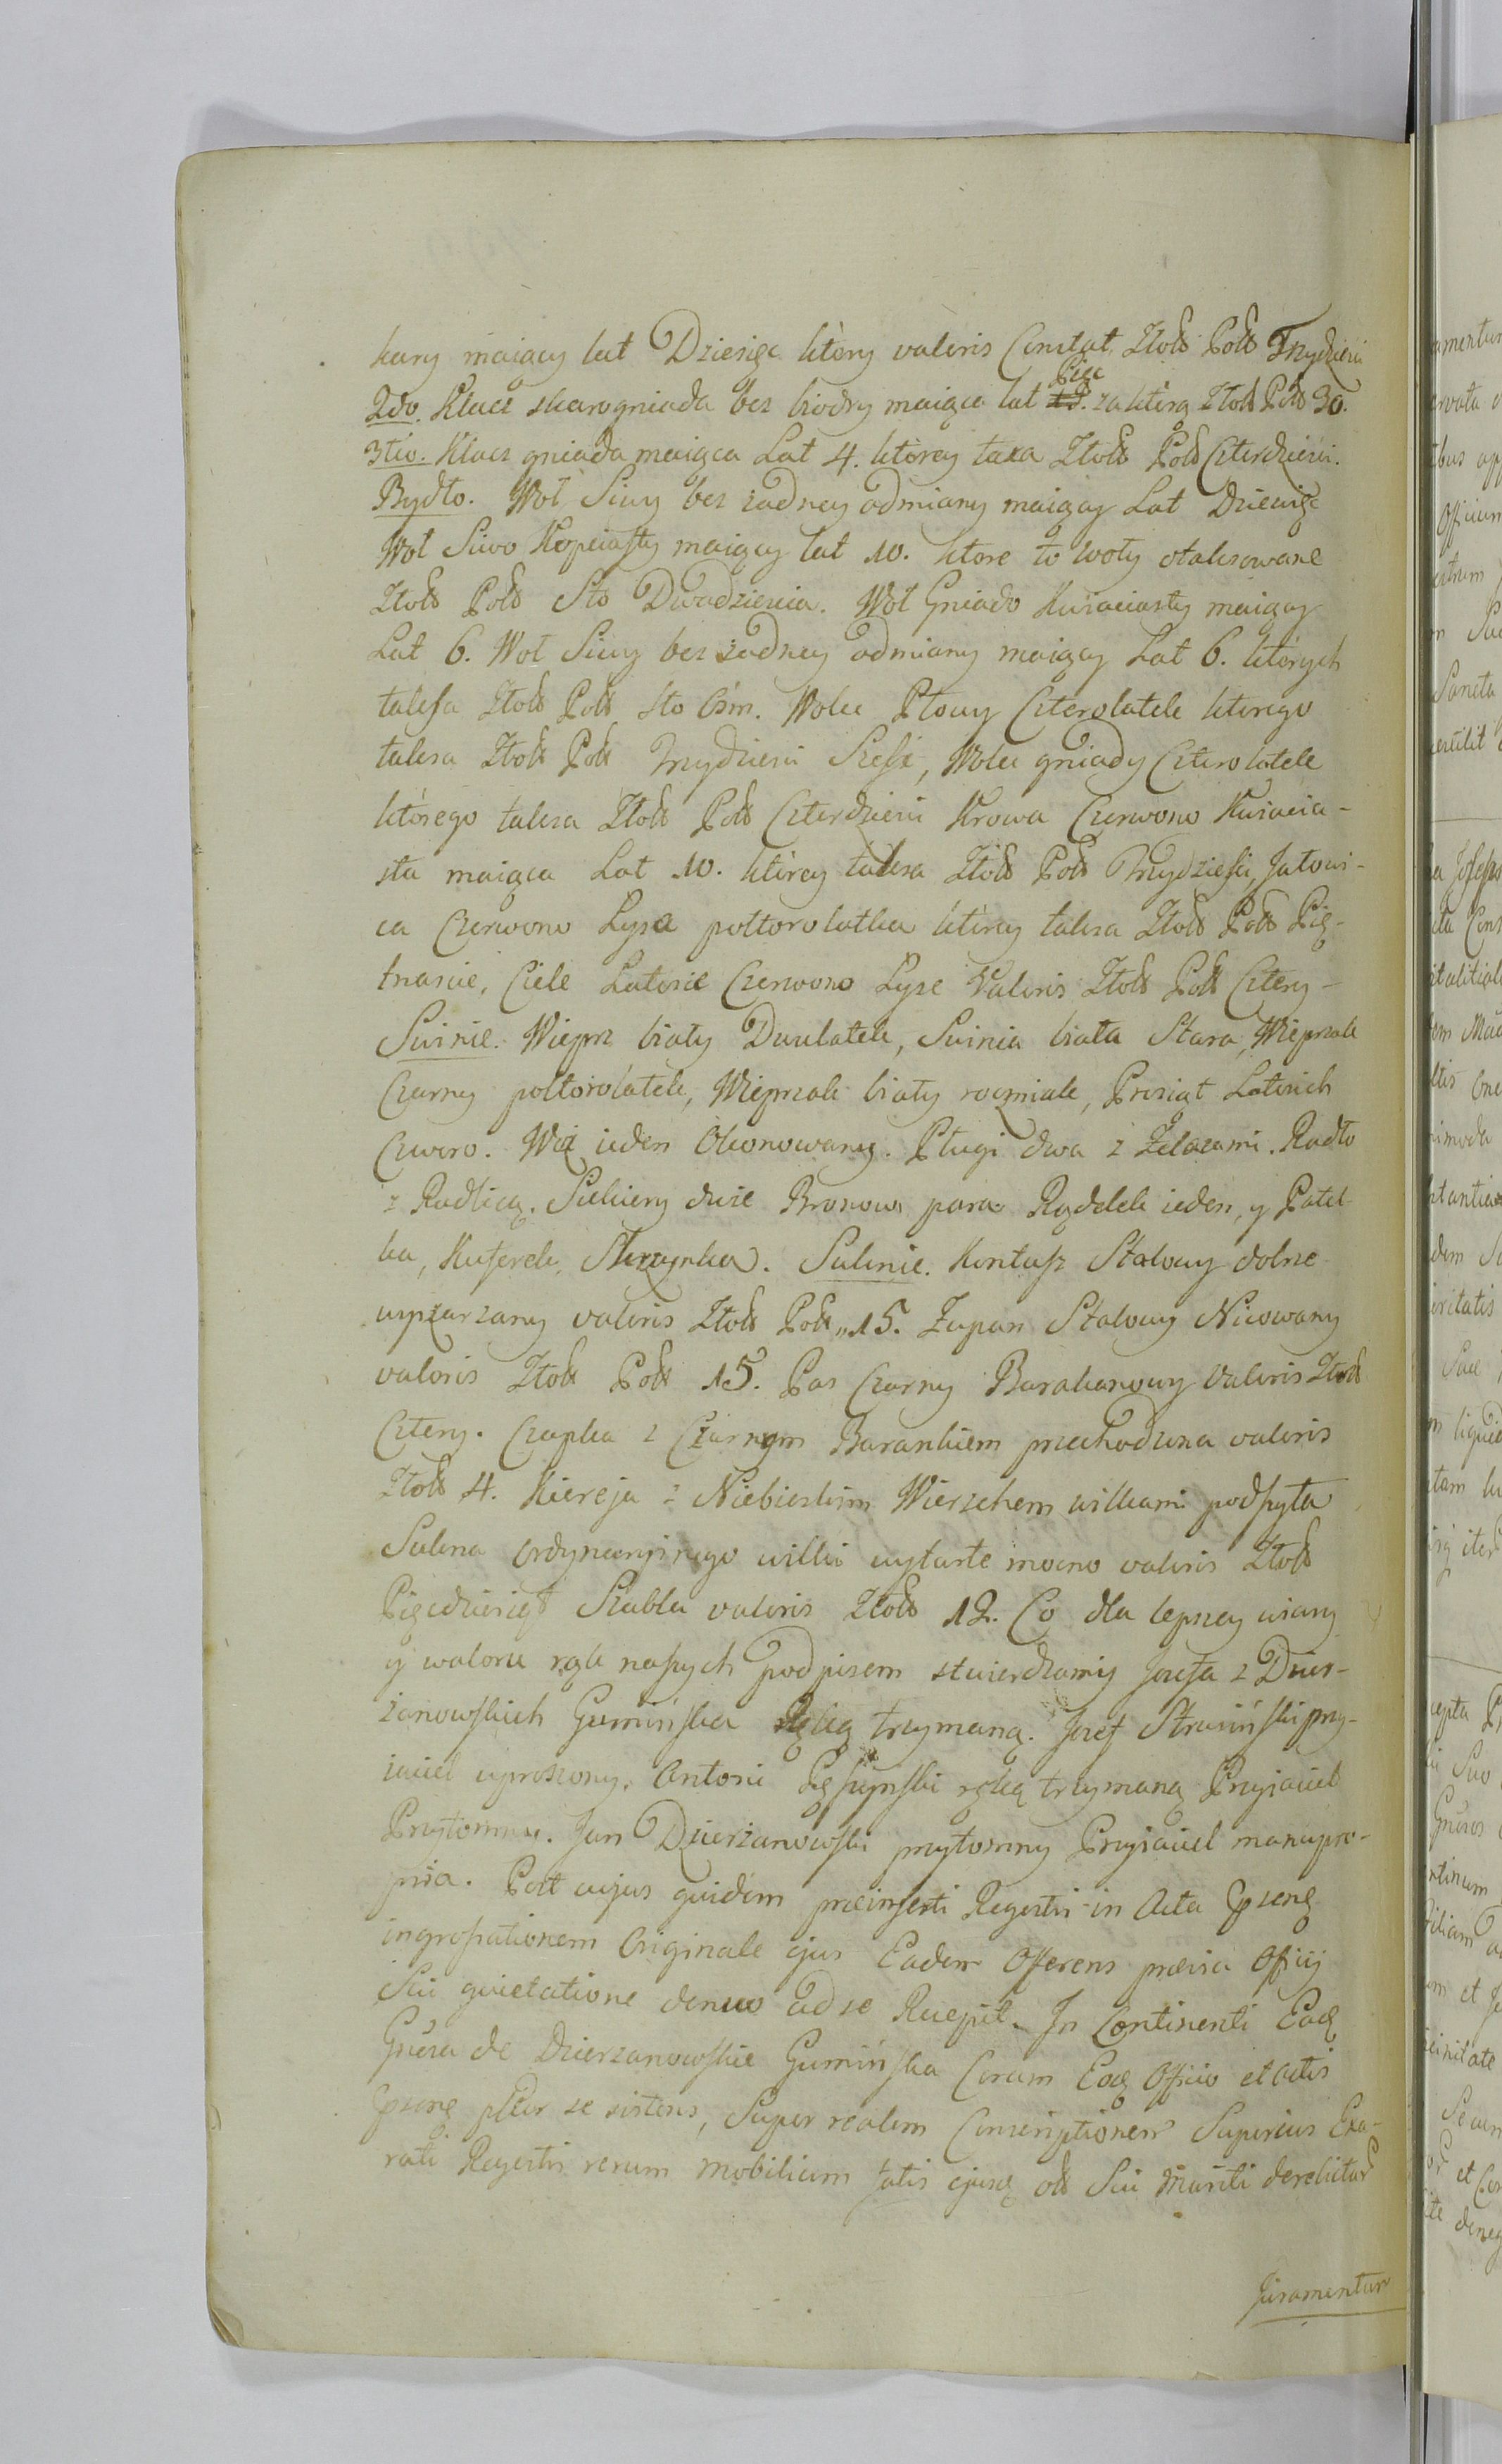 kary maiący lat Dziesięc ktòry valoris Constat Złoł Pol Trzydzieści
2do. Klacz skarogniada bez biodry maiąca lat Pięc za ktòrą Złoł Pol 30.
3tio. Klacz gniada maiąca Lat 4. ktòrey taxa Złoł Pol Czterdzieści.
Bydło. Woł Siwy bez zadney odmiany maiący Lat Dziewięc
Woł Siwo Kopciasty maiący lat 10. ktore to woły otaksowane
Złoł Pol Sto Dwadziescia. Woł Gniado Kwiaciasty maiący
Lat 6. Woł Siwy bez żadney odmiany maiący Lat 6. ktòrych
taksa Złoł Pol sto Ośm. Wolec Płowy Czterolatek ktorego
taksa Złoł Pol Trzydziesci Sześć, Wolec gniady Czterolatek
ktòrego taksa Złoł Pol Czterdziesci Krowa Czerwono Kwiacia-
sta maiąca Lat 10. ktòrey taksa Złoł Pol Trzydzieści, Jałowi-
ca Czerwono Łysa połtorolatka ktòrey taksa Złoł Pol Pię-
tnascie, Ciele Latosie Czerwono Łyse Valoris Złoł Pol Cztery-
Swinie. Wieprz biały Dwulatek, Swinia biała Stara, Wieprzak
Czarny połtorolatek, Wieprzak biały roczniak, Prosiąt Latosich
Czworo. Woz ieden Okowowany. Pługi dwa z Żelazami. Radło
z Radlicą. Siekiery dwie Bronow para Rądelek ieden, y Patel-
ka, Kuferek, Skrzynka. Suknie. Kontusz Stalowy dobrze
wyszarzany valoris Złoł Pol „15. Żupan Stalowy Nicowany
valoris Złoł Pol 15. Pas Czarny Barakanowy Valoris Złoł
Cztery. Czapka z Czarnym Barankiem przechodzona valoris
Złoł 4. Kiereja z Niebieskim Wierzchem wilkami podszyta
Sukna ordynaryinego wilki wytarte mocno valoris Złoł
Pięcdziesiąt Szabla valoris Złoł 12. Co dla lepszey wiary
y waloru rąk naszych podpisem stwierdzamy Jozefa z Dzier-
żanowskich Gumińska Ręką trzymaną. Jozef Strusiński przy-
iaciel uproszony. Antoni ręką trzymaną Przyiaciel
Przytomny. Jan Dzierżanowski przytomny Przyiaciel manu pro-
pria. Post cujus quidem præinserti Regestri in Acta pseng
ingrossationem Originale ejus Eadem Offerens prævia Officij
Sui quietatione denuo ad se Recepit. In Continenti Eadq
Gnĕsa de Dzierzanowskie Gumińska Coram Eodq Officio et Actis
psentq psltr se sistens, Super realem Conscriptionem Superius Exa-
rati Regestri rerum Mobilium fatis ejusq olt Sui Mariti derelictar
Juramentum